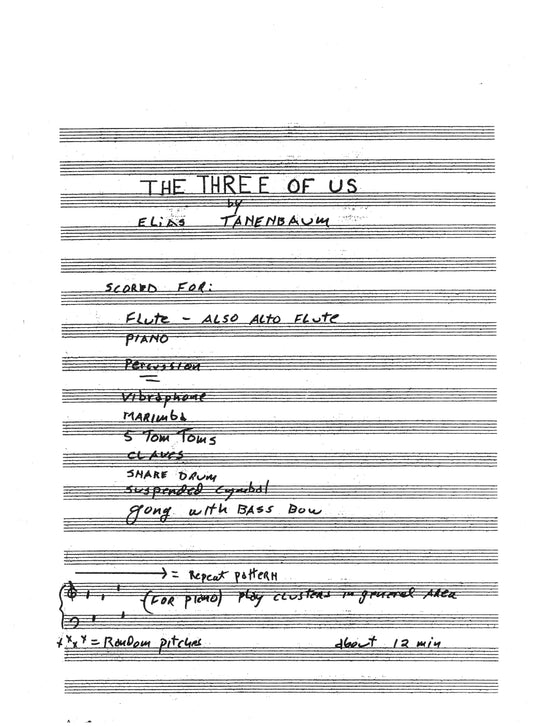 THE THREE OF US
by
ELIAS TANENBAUM
SCORED FOR:
Flute - ALSO ALTO FLUTE
PIANO
Percussion
Vibraphone
MARIMBA
5 Tom Toms
CLAVES
SNARE DRUM
Suspended cymbal
gong with BASS Bow
= Repeat pattern
(FOR PIANO) Play clusters in general AREA
x x x x = Random pitches about 12 min